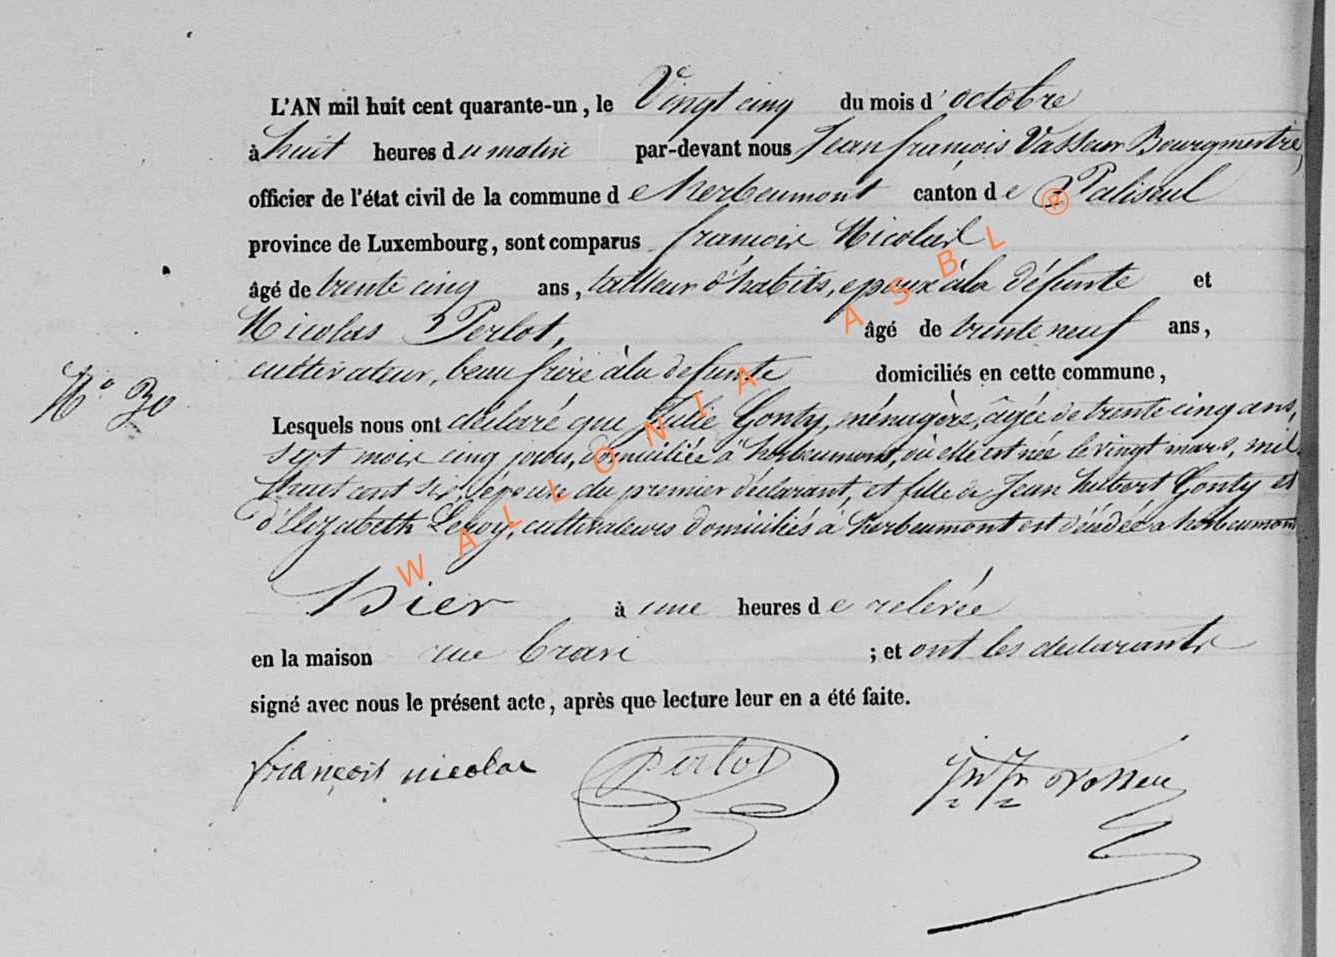 L'AN mil huit cent quarante-un, le Vingt cinq du mois d'octobre
à huit heures du matin par-devant nous Jean françois Vasseur Bourgmestre,
officier de l'état civil de la commune de herbeumont canton de Paliseul
province de Luxembourg, sont comparus françois Nicolas
âgé de trente cinq ans, tailleur d'habits, epoux à la défunte et
Nicolas Perlot, âgé de trente neuf ans,
cultivateur, beau frère à la defunte domiciliés en cette commune,
N° 30
Lesquels nous ont déclaré que Julie Gonty, ménagère, âgée de trente cinq ans,
sept mois cinq jours, domiciliée à herbeumont, où elle est née le vingt mars, mil
huit cent six, epouse du premier déclarant, et fille de Jean hubert Gonty et
d'Elizabeth Leroy, cultivateurs domiciliés à herbeumont est décédée a herbeumont
hier à une heures de relevée
en la maison rue ; et ont les declarants
signé avec nous le présent acte, après que lecture leur en a été faite.
françois nicolas perlot
WALLONIA ASBL ®